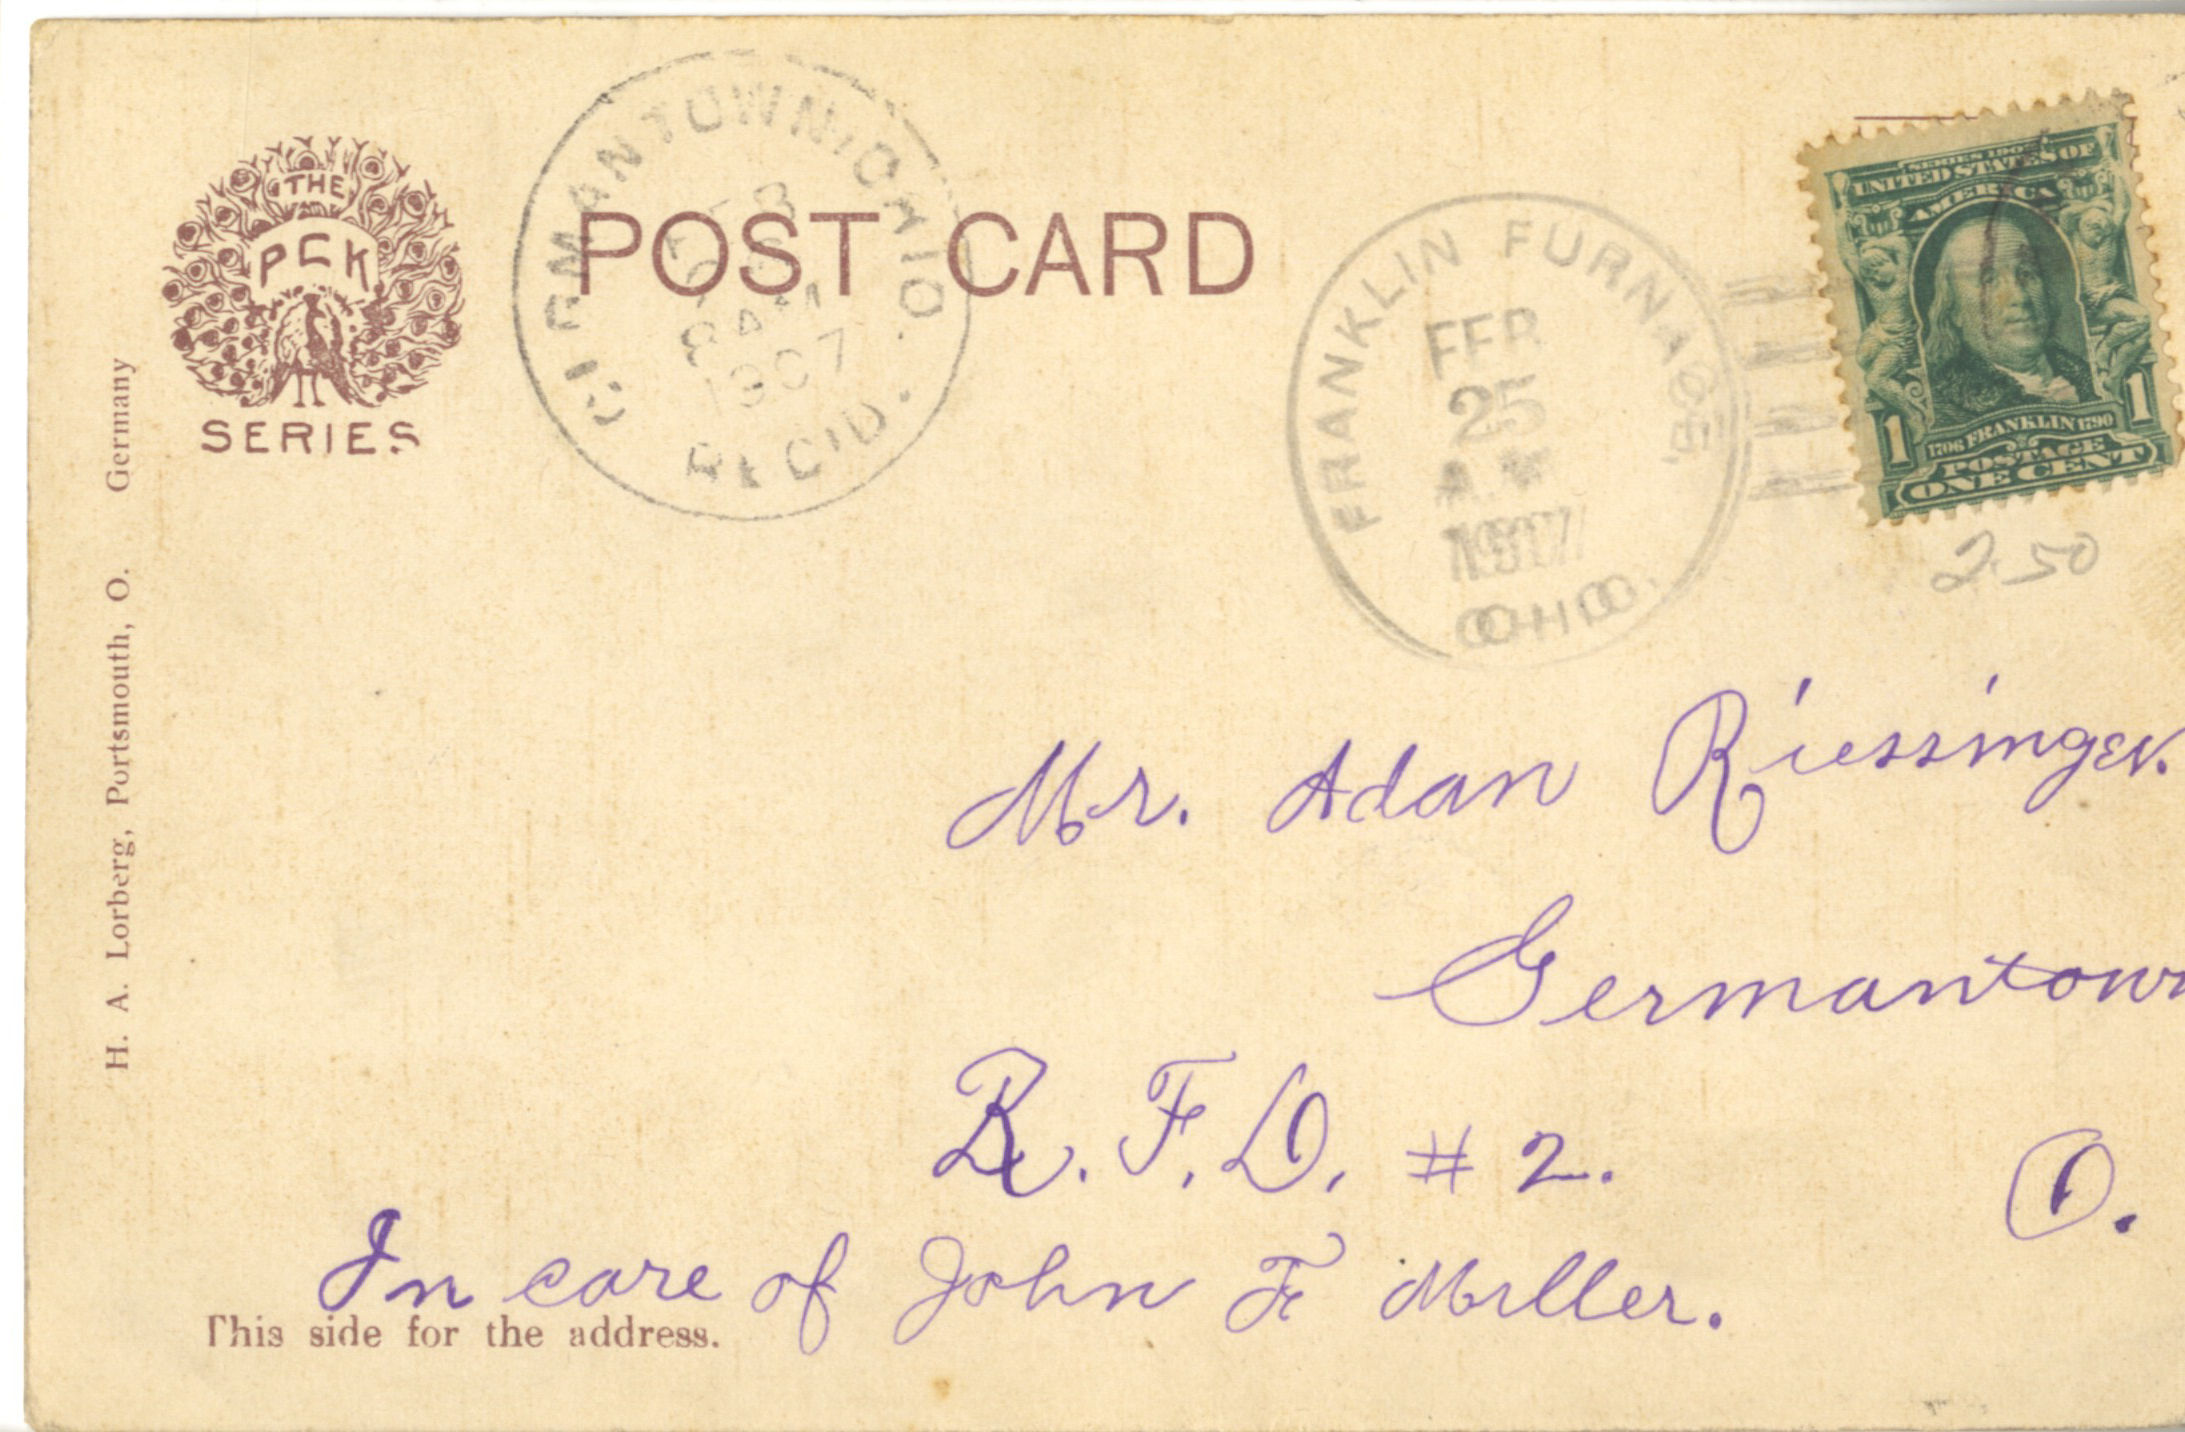 THE
PCK
SERIES
POST CARD
GERMANTOWN, OHIO.
8 AM
1907
REC'D.
FRANKLIN FURNACE,
FEB
25
1907
OHIO.
SERIES 1902
UNITED STATES OF
AMERICA
1706 FRANKLIN 1790
POSTAGE
1 1
ONE CENT
2.50
H. A. Lorberg, Portsmouth, O. Germany
Mr. Adan Riessinger.
Germantown
R. F. D. # 2.
O.
In care of John F Miller.
This side for the address.